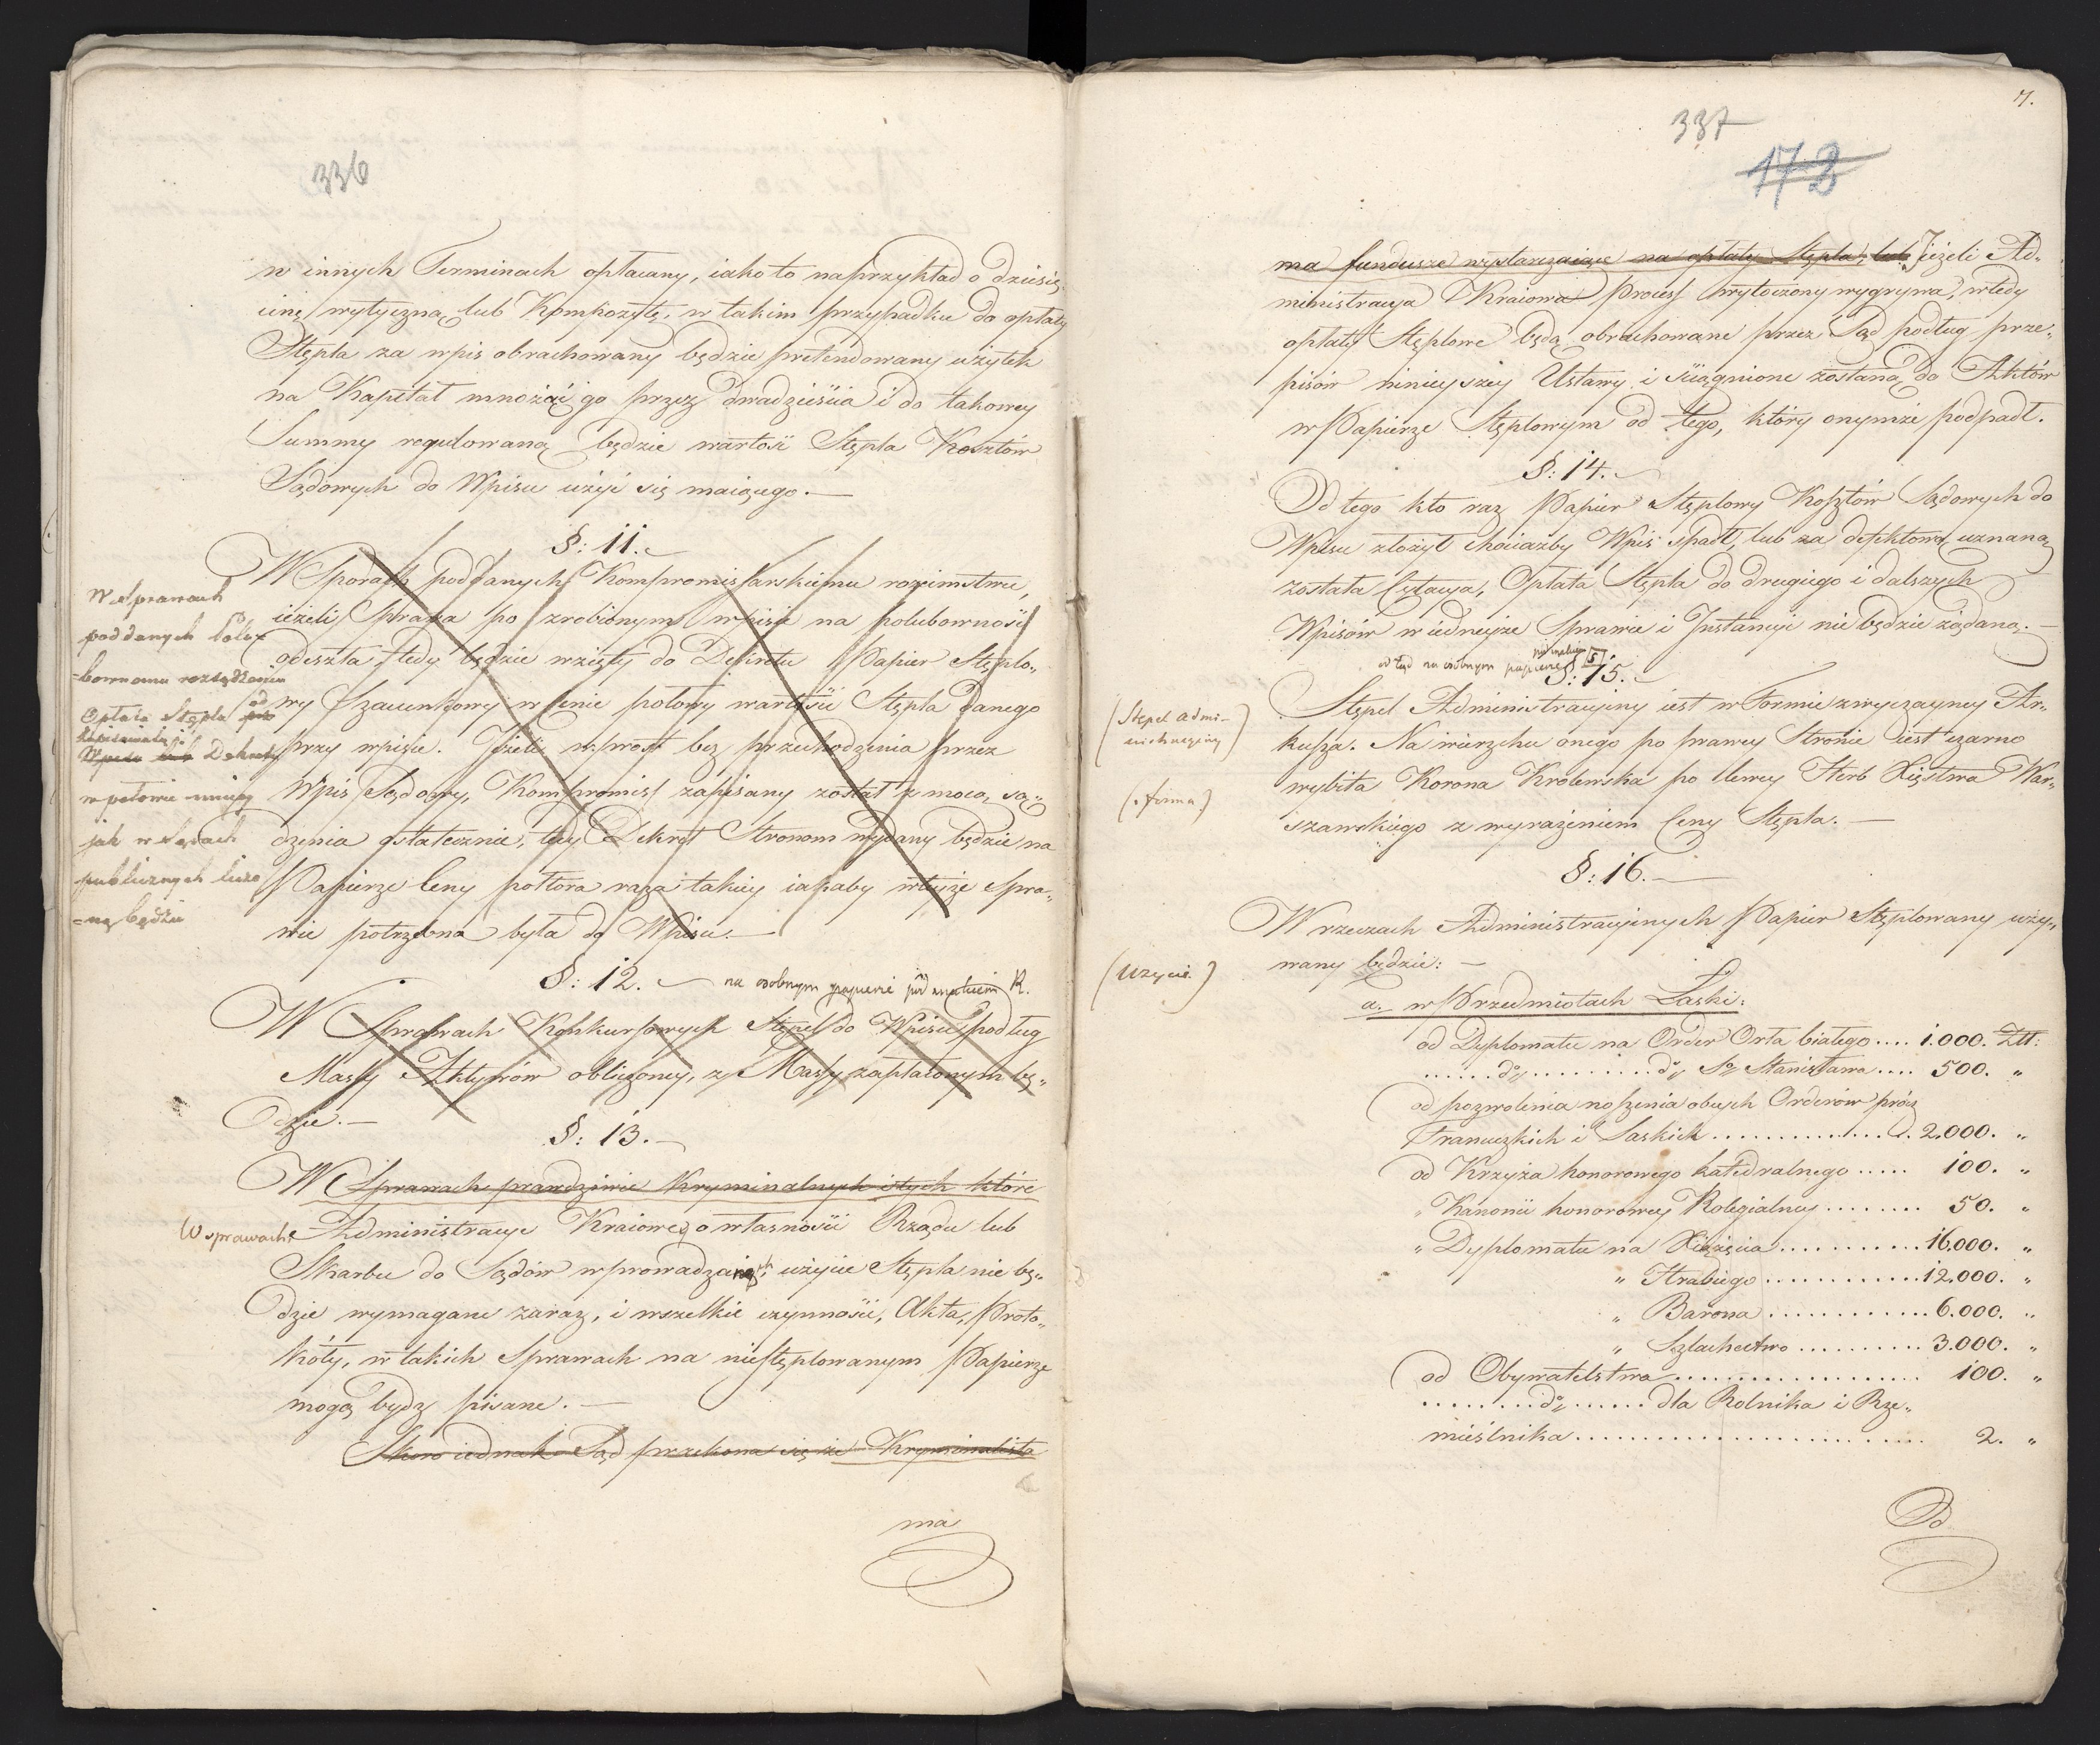 336
w innych Terminach opłacany, iako to naprzykład o dziesię„
cinę wytyczną lub Kompozytę, w takim przypadku do opłaty
Stępla za wpis obrachowany będzie pretendowany użytek
na Kapitał mnożąć go przez dwadzieścia i do takowey
Summy regulowaną będzie wartość Stępla Kosztów
Sądowych do Wpisu użyć się maiącego. —
§: 11.
W Sporach poddanych Kompromissarskiemu rozimstwu,
ieżeli Sprawa po zrobionym wpisie na polubowność
odeszła, tedy będzie wzięty do Dekretu Papier Stęplo„
wy Szacunkowy w cenie połowy wartości Stępla danego
przy wpisie. Jeżeli wprost bez przechodzenia przez
Wpis Sądowy, Kompromiss zapisany został z mocą są„
dzenia ostatecznie, tedy Dekret Stronom wydany będzie na
Papierze Ceny półtora raza takiey iakaby w teyże Spra„
wie potrzebna była do Wpisu. —
W Sprawach
poddanych Polu=
=bownemu rozsądzeniu
Opłata Stępla od
Wpisu lub Dekretu
w połowie mniey
jak w Sądach
publicznych liczo
=ną będzie
§: 12. — na osobnym papierze pod znakiem R.
W Sprawach Konkursowych Stępel do Wpisu podług
Massy Aktywów obliczoney, z Massy zapłaconym bę„
dzie. —
§: 13. —
W Sprawach prawdziwie Kryminalnych i tych które
W sprawach Administracye Kraiowe o własności Rządu lub
Skarbu do Sądów wprowadzaią, użycie Stępla nie bę„
dzie wymagane zaraz, i wszelkie czynności, Akta, Proto„
kóły, w takich Sprawach na niestęplowanym Papierze
mogą bydz pisane. —
Skoro iednak Sąd przekona się że Kryminalista
ma
7.
337
173
ma fundusze wystarczaiące na opłaty Stępla, lub Jeżeli Ad„
ministracya Kraiowa process wytoczony wygrywa, wtedy
opłaty Stęplowe będą obrachowane przez Sąd podług prze„
pisów ninieyszey Ustawy i ściągnione zostaną do Aktów
w Papierze Stęplowym od tego, który onymże podpadł.
§: 14.
Od tego kto raz Papier Stęplowy Kosztów Sądowych do
Wpisu złożył chociażby Wpis spadł, lub za defektową uznana
została Cytacya, Opłata Stępla do drugiego i dalszych
Wpisów w iedneyże Sprawie i Instancyi nie będzie żądaną. —
od tąd na osobnym papierze pod znakiem S
§: 15.
(Stępel admi-
nistracyiny)
Stępel Administracyiny iest w Formie zwyczayney Ar„
kusza. Na wierzchu onego po prawey Stronie iest czarno
wybita Korona Krolewska po lewey Herb Xięstwa War„
szawskiego z wyrażeniem Ceny Stępla. —
(forma.)
§: 16. —
W rzeczach Administracyinych Papier Stęplowany uży„
wany będzie: —
(Użycie)
a. w Przedmiotach Łaski:
od Dyplomatu na Order Orła białego .... 1.000. Złł:
......do..........do So Stanisława .... 500. „
od pozwolenia noszenia obcych Orderów prócz
Francuzkich i Saskich .............. 2.000. „
od Krzyża honorowego katedralnego ..... 100. „
„ Kanonii honorowey Kolegialney ........ 50. „
„ Dyplomatu na Xiążęcia ............ 16.000. „
„ Hrabiego ............. 12.000. „
„ Barona ............. 6.000. „
„ Szlachectwo .......... 3.000. „
od Obywatelstwa .................. 100. „
.........do...... dla Rolnika i Rze„
mieślnika ........................ 2. „
Od